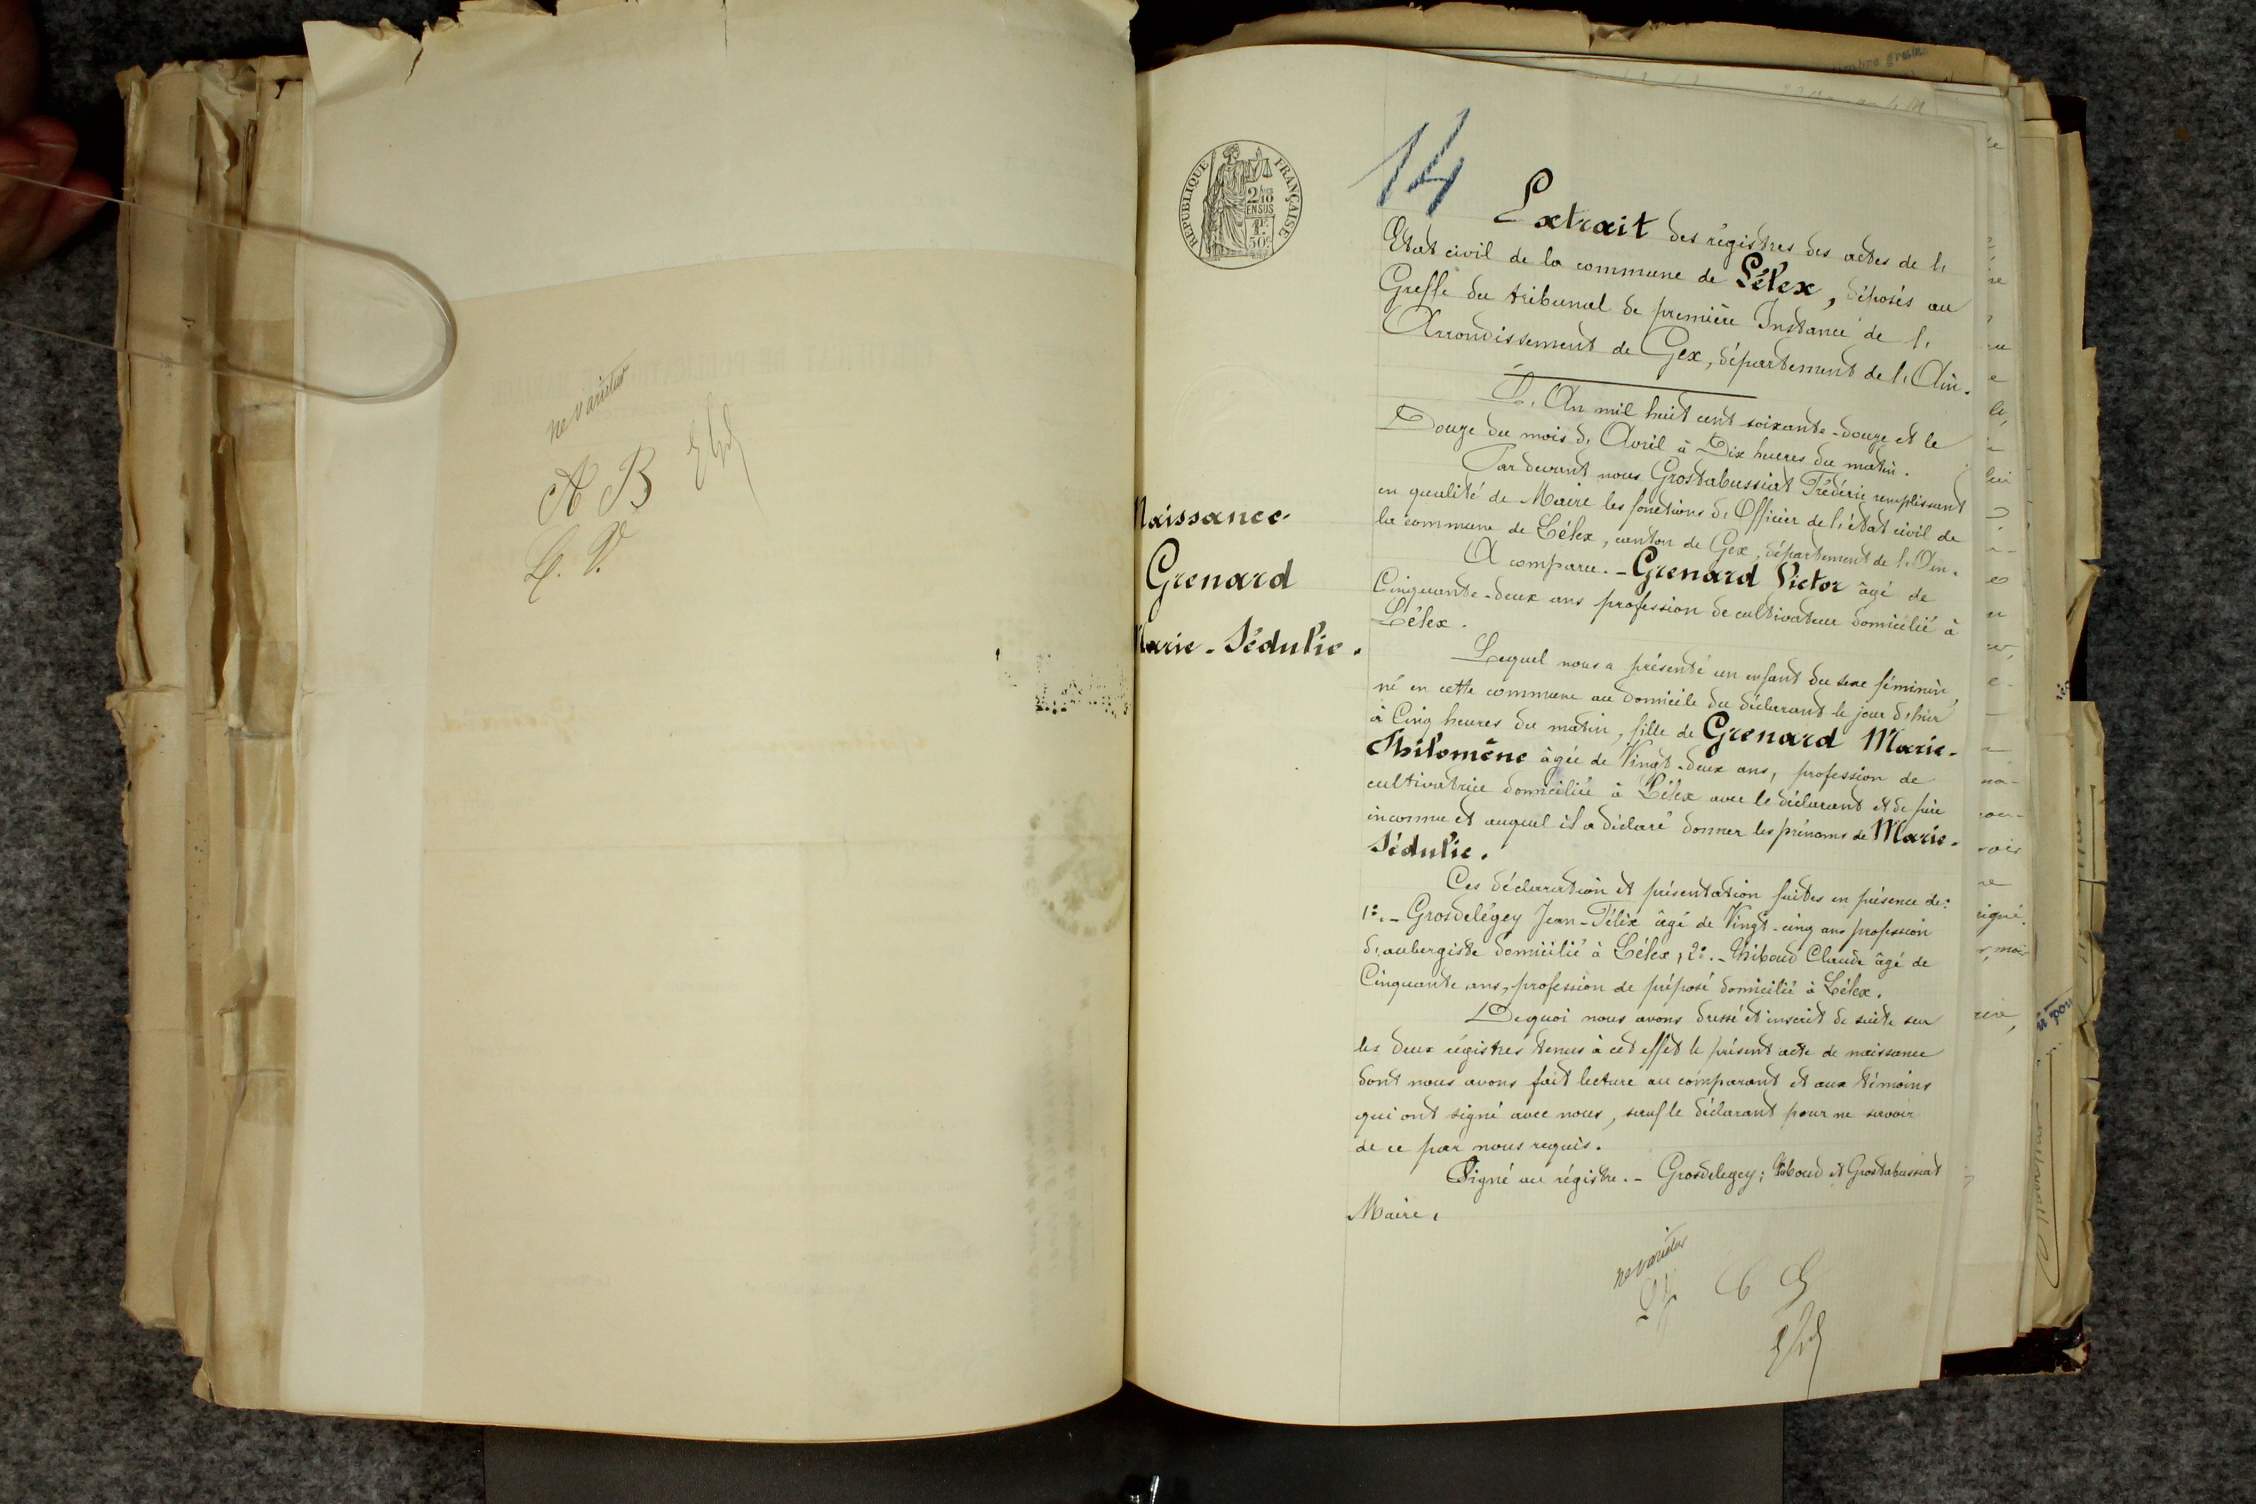 ne varietur
A B
L. V.
RÉPUBLIQUE FRANÇAISE
2/10
EN SUS
1F
50c
14
Naissance
Grenard
Marie-Sédulie.
Extrait des régistres des actes de l'
Etat civil de la commune de Lélex, déposés au
Greffe du tribunal de première Instance de l'
Arrondissement de Gex, département de l'Ain.
L'An mil huit cent soixante-douze et le
Douze du mois d'Avril à Dix heures du matin.
Par devant nous Grostabussiat Frédéric remplissant
en qualité de Maire les fonctions d'Officier de l'état civil de
la commune de Lélex, canton de Gex, département de l'Ain.
A comparu. - Grenard Victor âgé de
Cinquante-deux ans profession de cultivateur domicilié à
Lélex.
Lequel nous a présenté un enfant du sexe féminin,
né en cette commune au domicile du déclarant le jour d'hier
à Cinq heures du matin, fille de Grenard Marie-
Philomène âgée de Vingt-deux ans, profession de
cultivatrice domiciliée à Lélex avec le déclarant et de père
inconnu et auquel il a déclaré donner les prénoms de Marie-
Sédulie.
Ces déclaration et présentation faites en présence de:
1°. - Grosdelégey Jean-Félix âgé de Vingt-cinq ans profession
d'aubergiste domicilié à Lélex, 2°. - Thiboud Claude âgé de
Cinquante ans, profession de préposé domicilié à Lélex.
De quoi nous avons dressé et inscrit de suite sur
les deux régistres tenus à cet effet le présent acte de naissance
dont nous avons fait lecture au comparant et aux témoins
qui ont signé avec nous, sauf le déclarant pour ne savoir
de ce par nous requis.
Signé au régistre. - Grosdelegey; Thiboud et Grostabussiat
Maire.
ne varietur